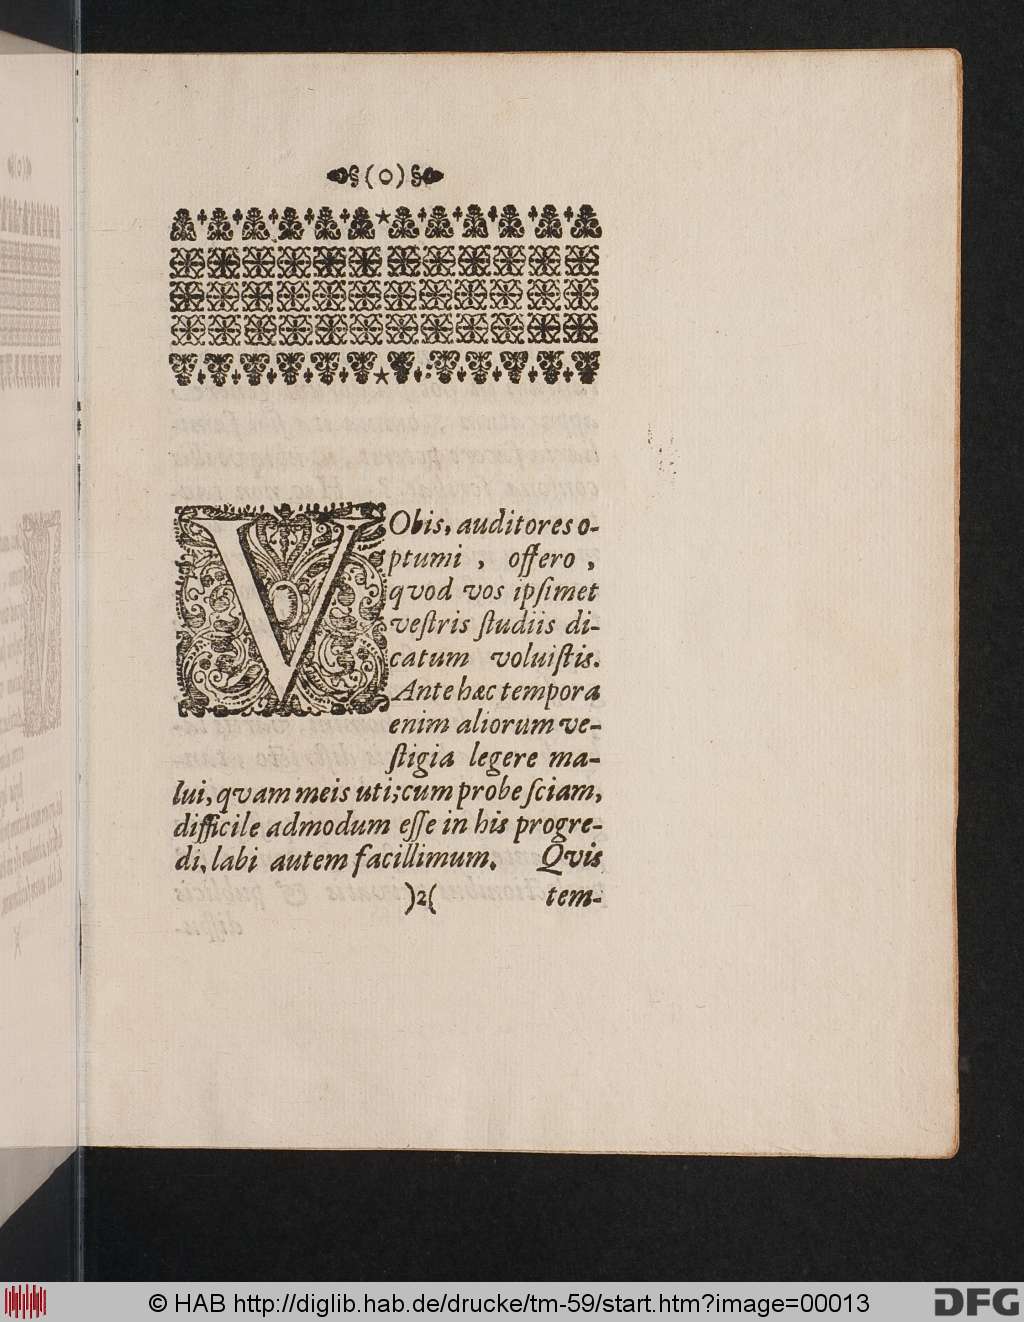 (o)
VObis, auditores o-
ptumi, offero,
qvod vos ipſimet
veſtris ſtudiis di-
catum voluiſtis.
Ante hæc tempora
enim aliorum ve-
ſtigia legere ma-
lui, qvam meis uti; cum probe ſciam,
difficile admodum eſſe in his progre-
di, labi autem facillimum. Qvis
)2( tem-
© HAB http://diglib.hab.de/drucke/tm-59/start.htm?image=00013
DFG